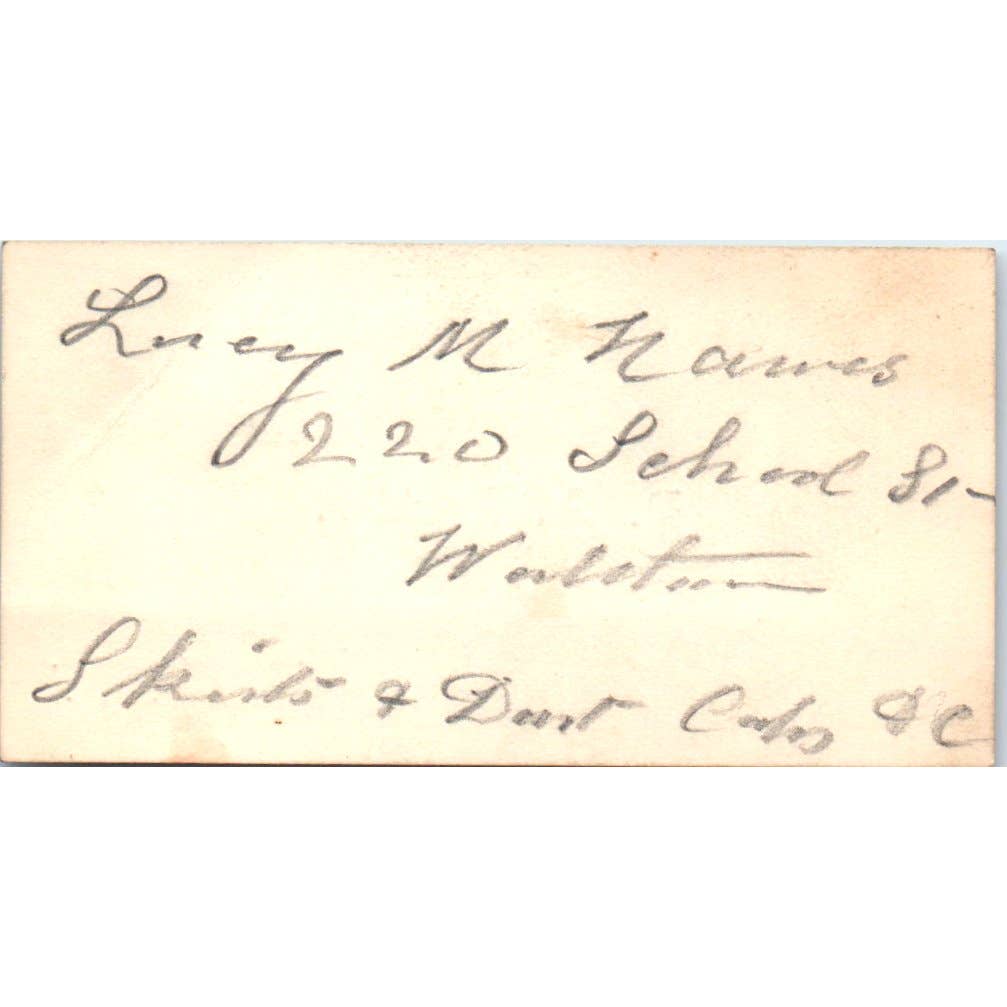 Lucy M Hawes
220 School St
Waltham
Skirts & Dust Caps &C